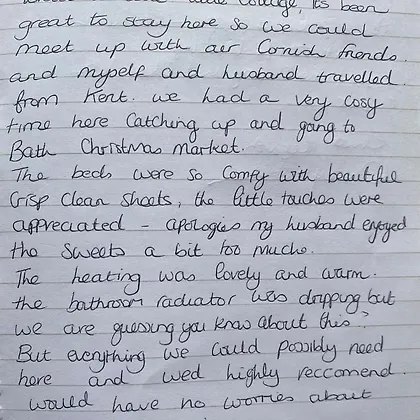 little cottage, its been
great to stay here so we could
meet up with our Cornish friends.
and myself and husband travelled
from Kent. we had a very cosy
time here Catching up and going to
Bath Christmas market.
The beds were so comfy with beautiful
crisp clean sheets, the little touches were
appreciated - apologies my husband enjoyed
the sweets a bit too much.
The heating was lovely and warm.
the bathroom radiator was dripping but
we are guessing you know about this?
But everything we could possibly need
here and wed highly reccomend.
would have no worries about